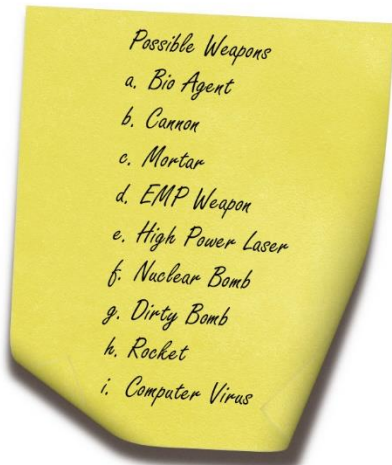 Possible Weapons
a. Bio Agent
b. Cannon
c. Mortar
d. EMP Weapon
e. High Power Laser
f. Nuclear Bomb
g. Dirty Bomb
h. Rocket
i. Computer Virus